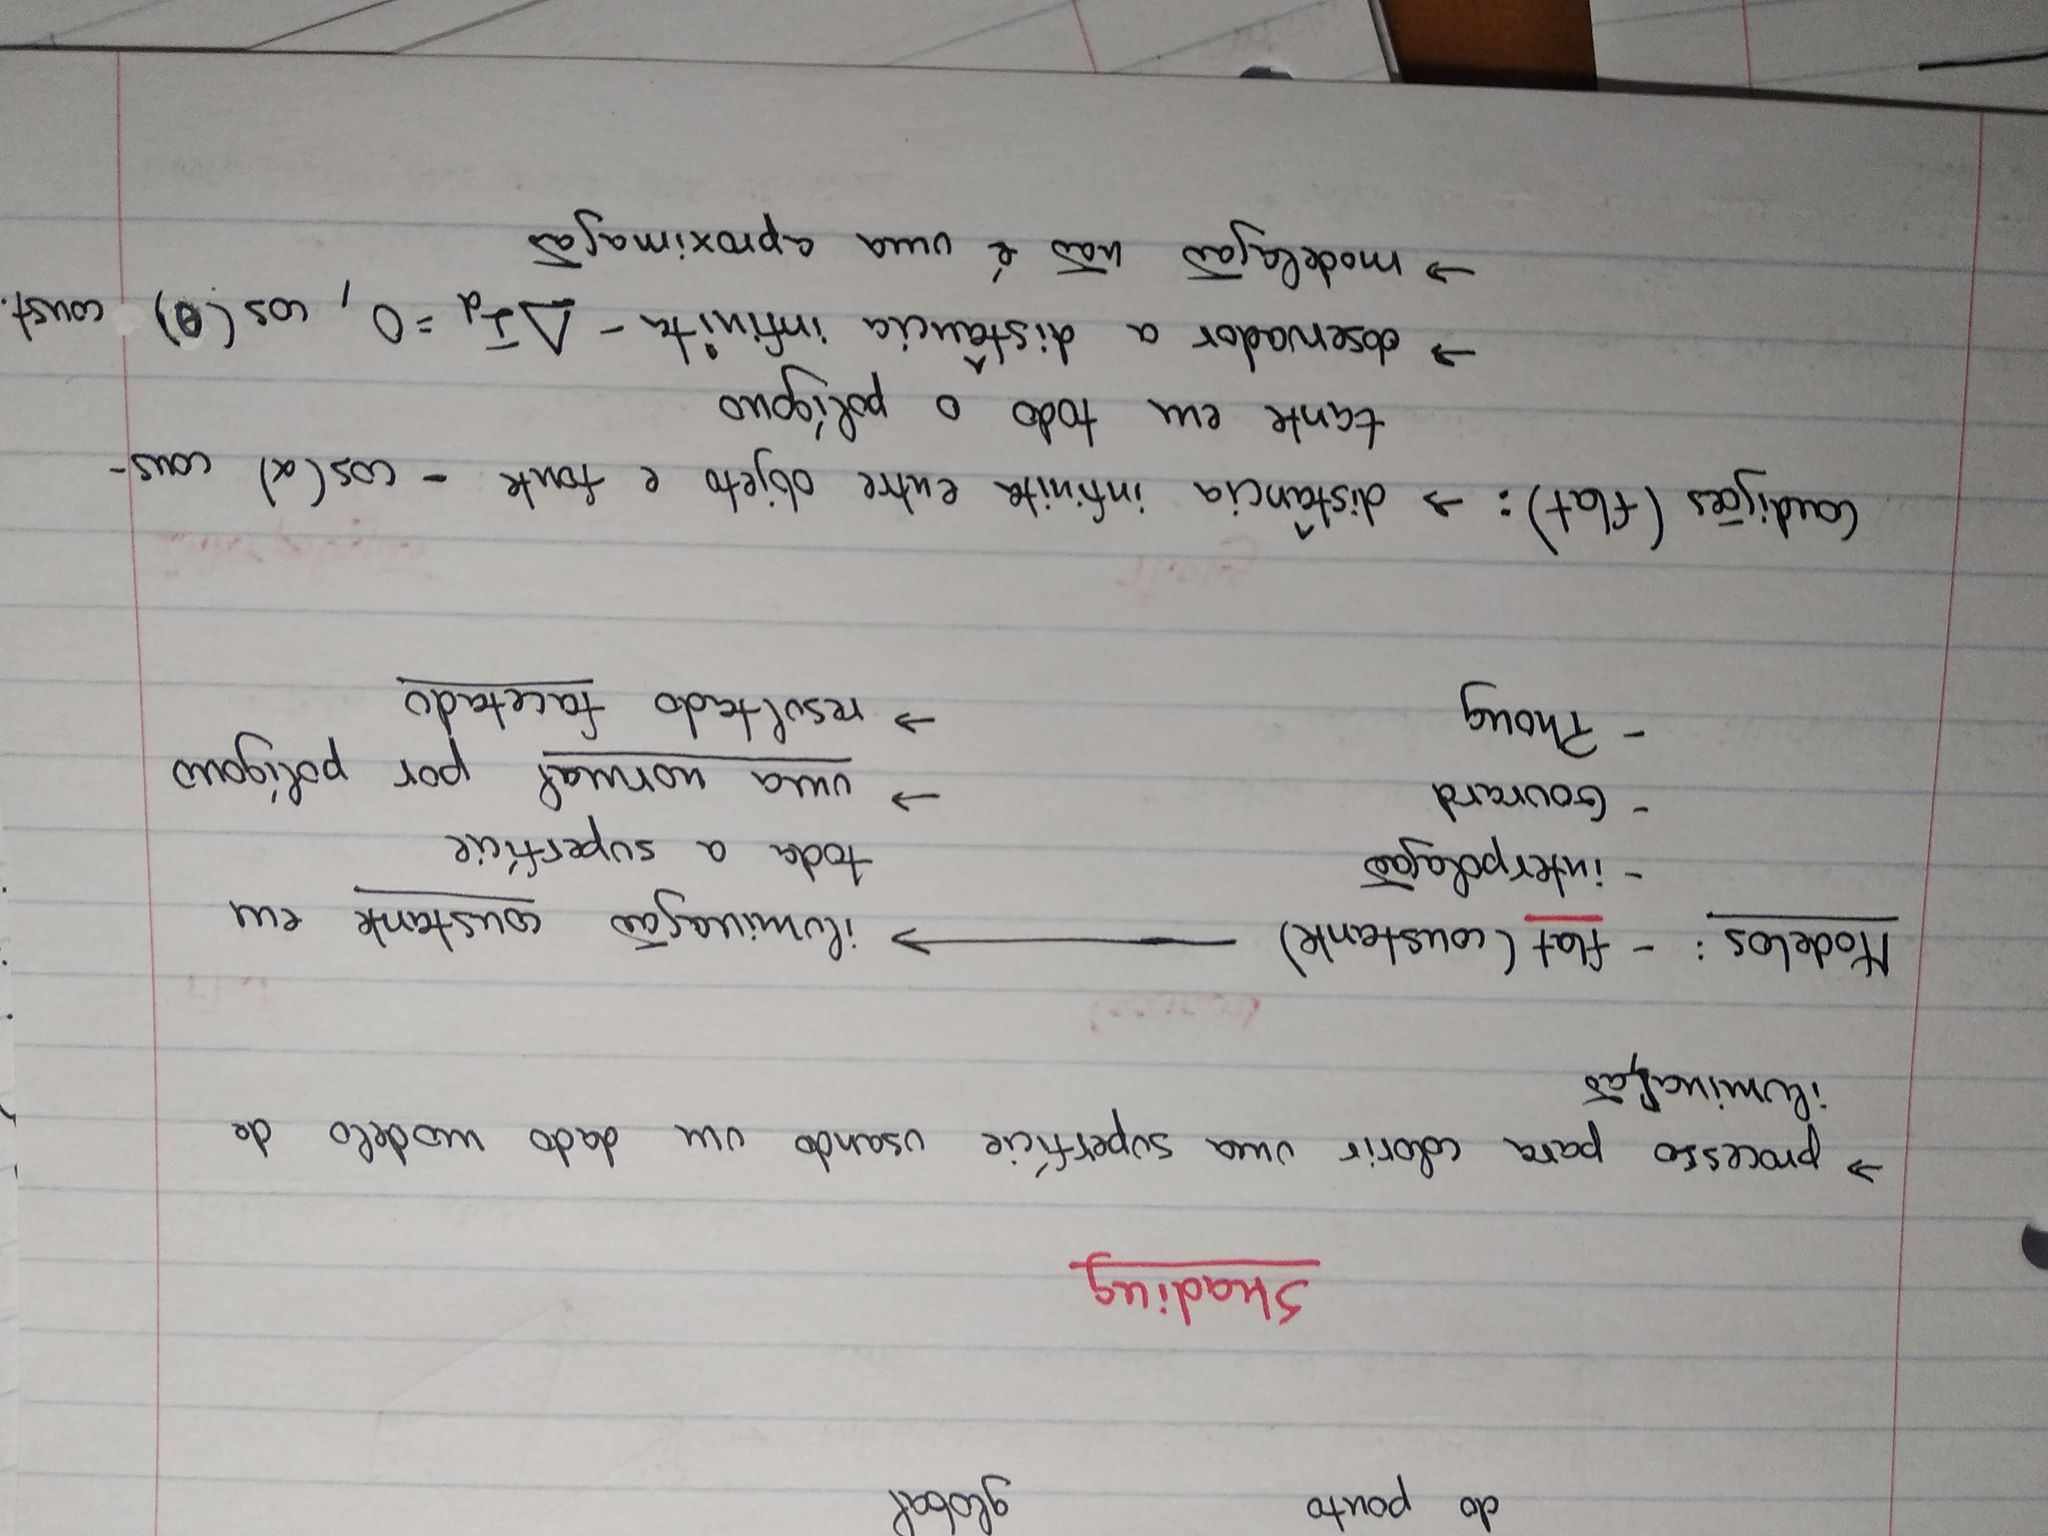 do ponto global
Shading
→ processo para colorir uma superfície usando um dado modelo de
iluminação
Modelos: - flat (constante) → iluminação constante em
- interpolação toda a superfície
- Gourard → uma normal por polígono
- Phong → resultado facetado
Condições (flat): → distância infinita entre objeto e fonte - cos(α) cons-
tante em todo o polígono
→ observador a distância infinita - ΔId = 0, cos(θ) const.
→ modelação não é uma aproximação